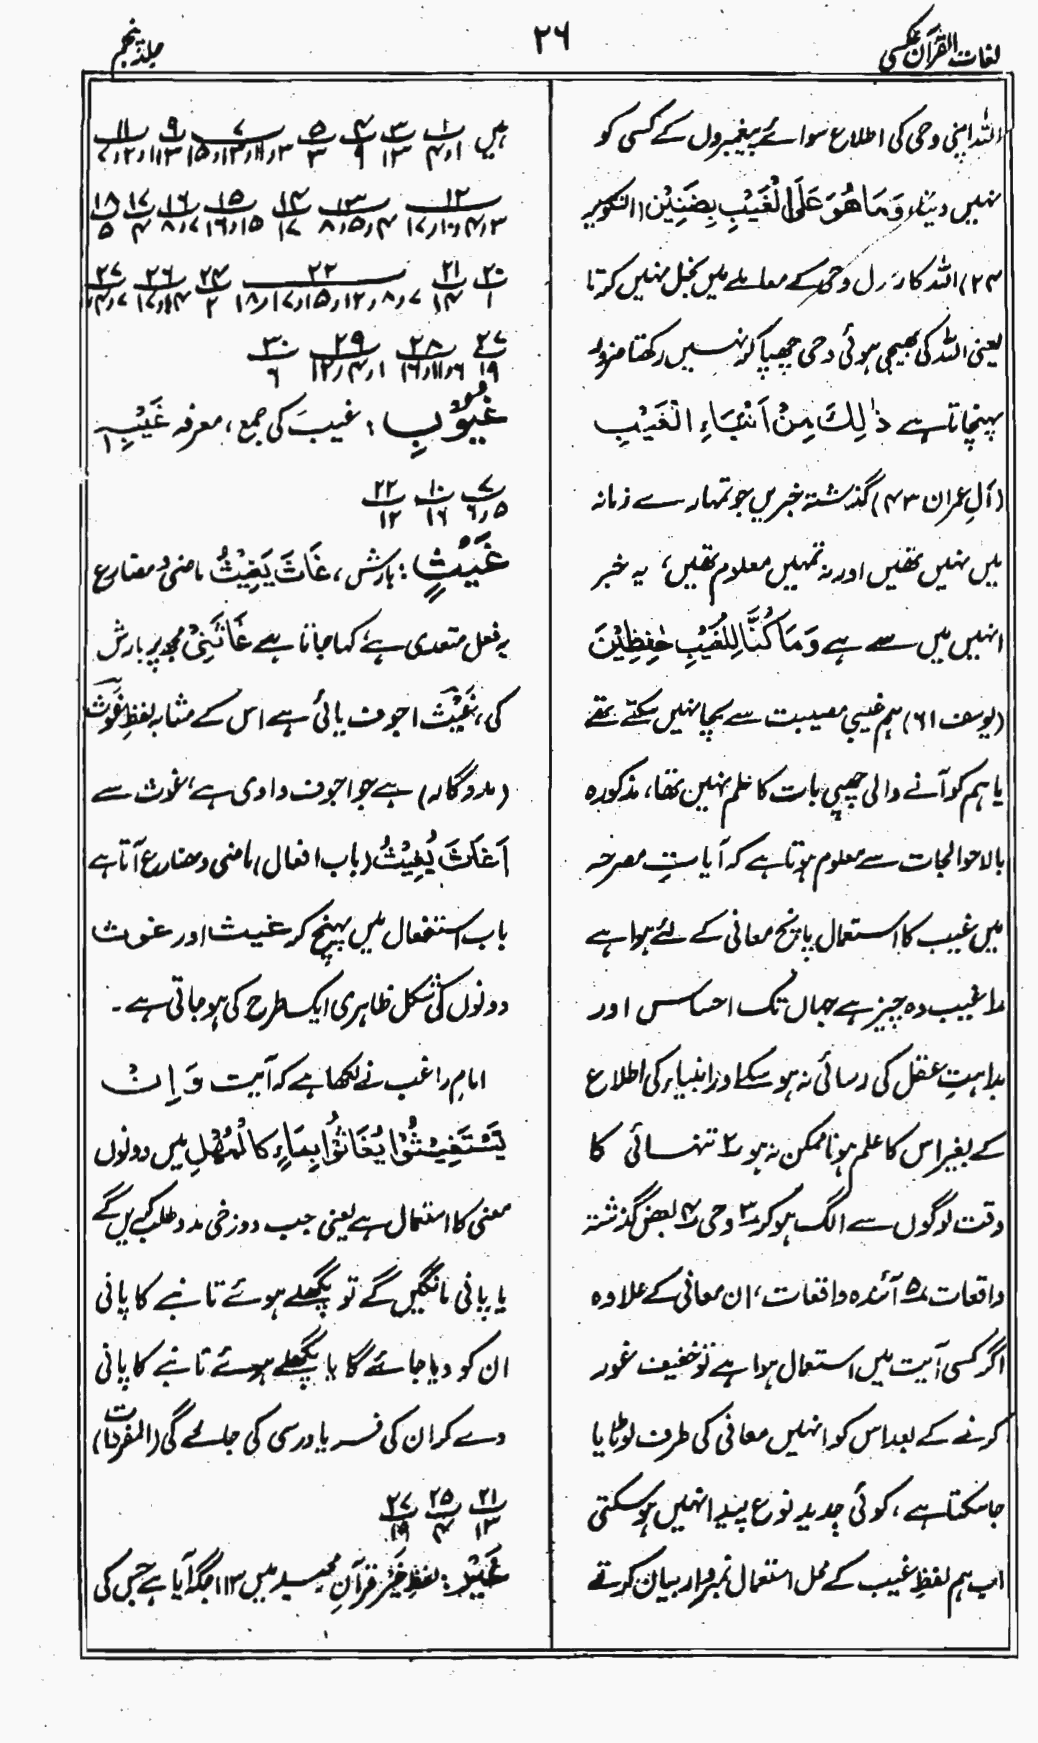 لغات القرآن عکسی
۲۶
جلد پنجم
اللہ اپنی وحی کی اطلاع سوائے پیغمبروں کے کسی کو
نہیں دیتا، وَمَا هُوَ عَلَى الْغَيْبِ بِضَنِيْنٍ (التکویر
۲۴) اللہ کا رسول وحی کے معاملے میں بخل نہیں کرتا
یعنی اللہ کی بھیجی ہوئی وحی چھپا کر نہیں رکھتا ضرور
پہنچاتا ہے ذٰلِكَ مِنْ اَنْبَاءِ الْغَيْبِ
(آل عمران ۴۳) گذشتہ خبریں جو تمہارے زمانہ
میں نہیں تھیں اور نہ تمہیں معلوم تھیں، یہ خبر
انہیں میں سے ہے وَمَا كُنَّا لِلْغَيْبِ حٰفِظِيْنَ
(یوسف ۶۱) ہم غیبی مصیبت سے بچا نہیں سکتے تھے
یا ہم کو آنے والی چھپی بات کا علم نہیں تھا، مذکورہ
بالا حوالجات سے معلوم ہوتا ہے کہ آیاتِ مصرحہ
میں غیب کا استعمال پانچ معانی کے لئے ہوا ہے
۱؎ غیب وہ چیز ہے جہاں تک احساس اور
بداہتِ عقل کی رسائی نہ ہو سکے اور انبیاء کی اطلاع
کے بغیر اس کا علم ہونا ممکن نہ ہو ۲؎ تنہائی کا
وقت لوگوں سے الگ ہو کر ۳؎ وحی ۴؎ بعض گذشتہ
واقعات ۵؎ آئندہ واقعات، ان معانی کے علاوہ
اگر کسی آیت میں استعمال ہوا ہے تو خفیف غور
کرنے کے بعد اس کو انہیں معانی کی طرف لوٹایا
جا سکتا ہے، کوئی جدید نوع پیدا نہیں ہو سکتی
اب ہم لفظِ غیب کے محل استعمال نمبروار بیان کرتے
ہیں ۱ ۳ ۴ ۵ ۷ ۹ ۱۱
۱و۴ ۱۳ ۹ ۳
۱۲ ۱۳ ۱۴ ۱۵ ۱۶ ۱۷ ۱۸
۱۷ ۴ ۵
۲۰ ۲۱ ۲۲ ۲۴ ۲۶ ۲۷
۱ ۱۴ ۷و۸و۱۲و۱۵و۱۷و۱۸ ۲
۲۷ ۲۸ ۲۹ ۳۰
۱۹ ۶و۱۱و۱۶ ۱و۴و۱۲ ۶
غُيُوْبِ: غیبَ کی جمع، معرفہ غَيْبِ ۱
۷ ۱۰ ۲۲
۵و۶ ۱۶ ۱۲
غَيْثٍ: بارش، غَاثَ يَغِيْثُ ماضی و مضارع
یہ فعل متعدی ہے، کہا جاتا ہے غَاثَنِیْ مجھ پر بارش
کی، غَيْث اجوف یائی ہے اس کے مشابہ لفظِ غَوث
(مددگار) ہے جو اجوف واوی ہے، غوث سے
اَغَاثَ يُغِيْثُ (باب افعال) ماضی و مضارع آتا ہے
باب استفعال میں پہنچ کر غیث اور غوث
دونوں کی شکل ظاہری ایک طرح کی ہو جاتی ہے۔
امام راغب نے لکھا ہے کہ آیت وَاِنْ
يَّسْتَغِيْثُوْا يُغَاثُوْا بِمَاءٍ كَالْمُهْلِ میں دونوں
معنی کا استعمال ہے یعنی جب دوزخی مدد طلب کریں گے
یا پانی مانگیں گے تو پگھلے ہوئے تانبے کا پانی
ان کو دیا جائے گا یا پگھلے ہوئے تانبے کا پانی
دے کر ان کی فریادرسی کی جائے گی (المفردات)
۲۱ ۲۵ ۲۷
۱۳ ۴ ۱۹
غَيْرِ: لفظِ غیر قرآنِ مجید میں ۱۱۳ جگہ آیا ہے جس کی